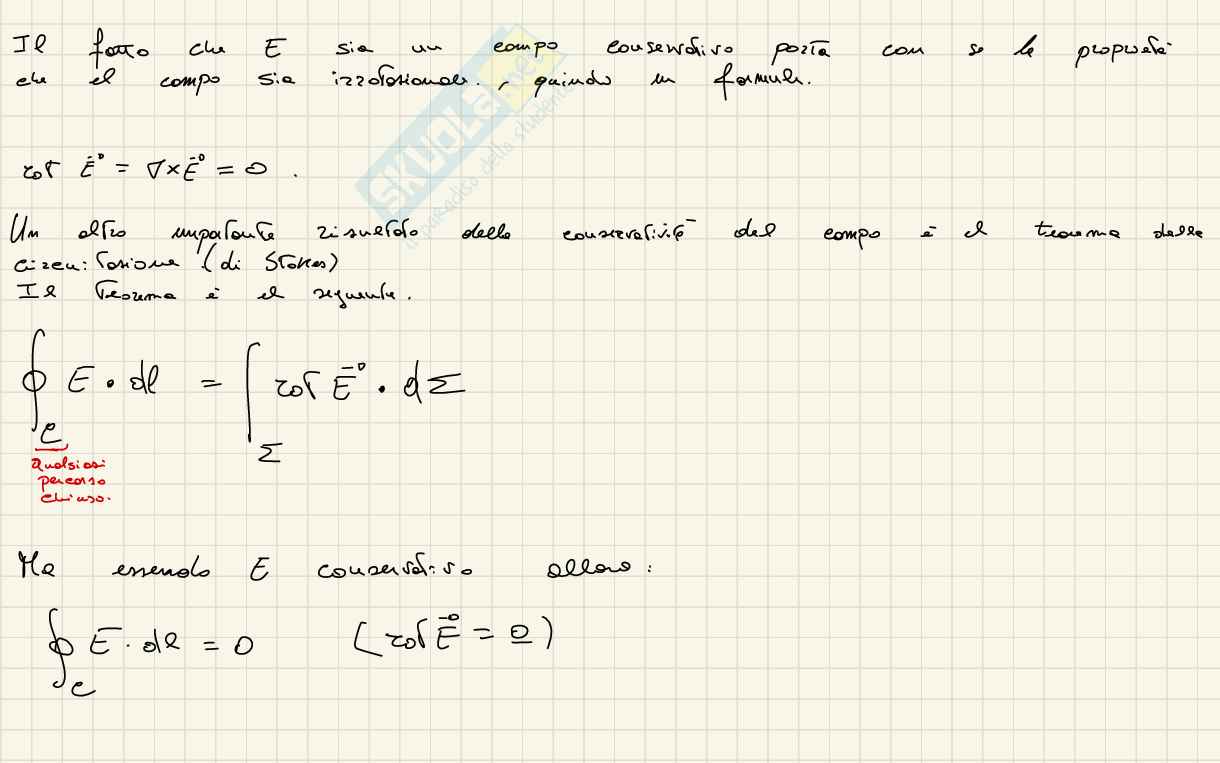 Il fatto che E sia un campo conservativo porta con se la proprietà
che il campo sia irrotazionale, quindi in formule.
rot E⃗ = ∇×E⃗ = 0 .
Un altro importante risultato della conservatività del campo è il teorema della
circuitazione (di Stokes)
Il Teorema è il seguente.
∮_C E · dl = ∫_Σ rot E⃗ · dΣ
Qualsiasi
percorso
chiuso.
Ma essendo E conservativo allora:
∮_C E · dl = 0 (rot E⃗ = 0)
SKUOLA.net
il paradiso dello studente